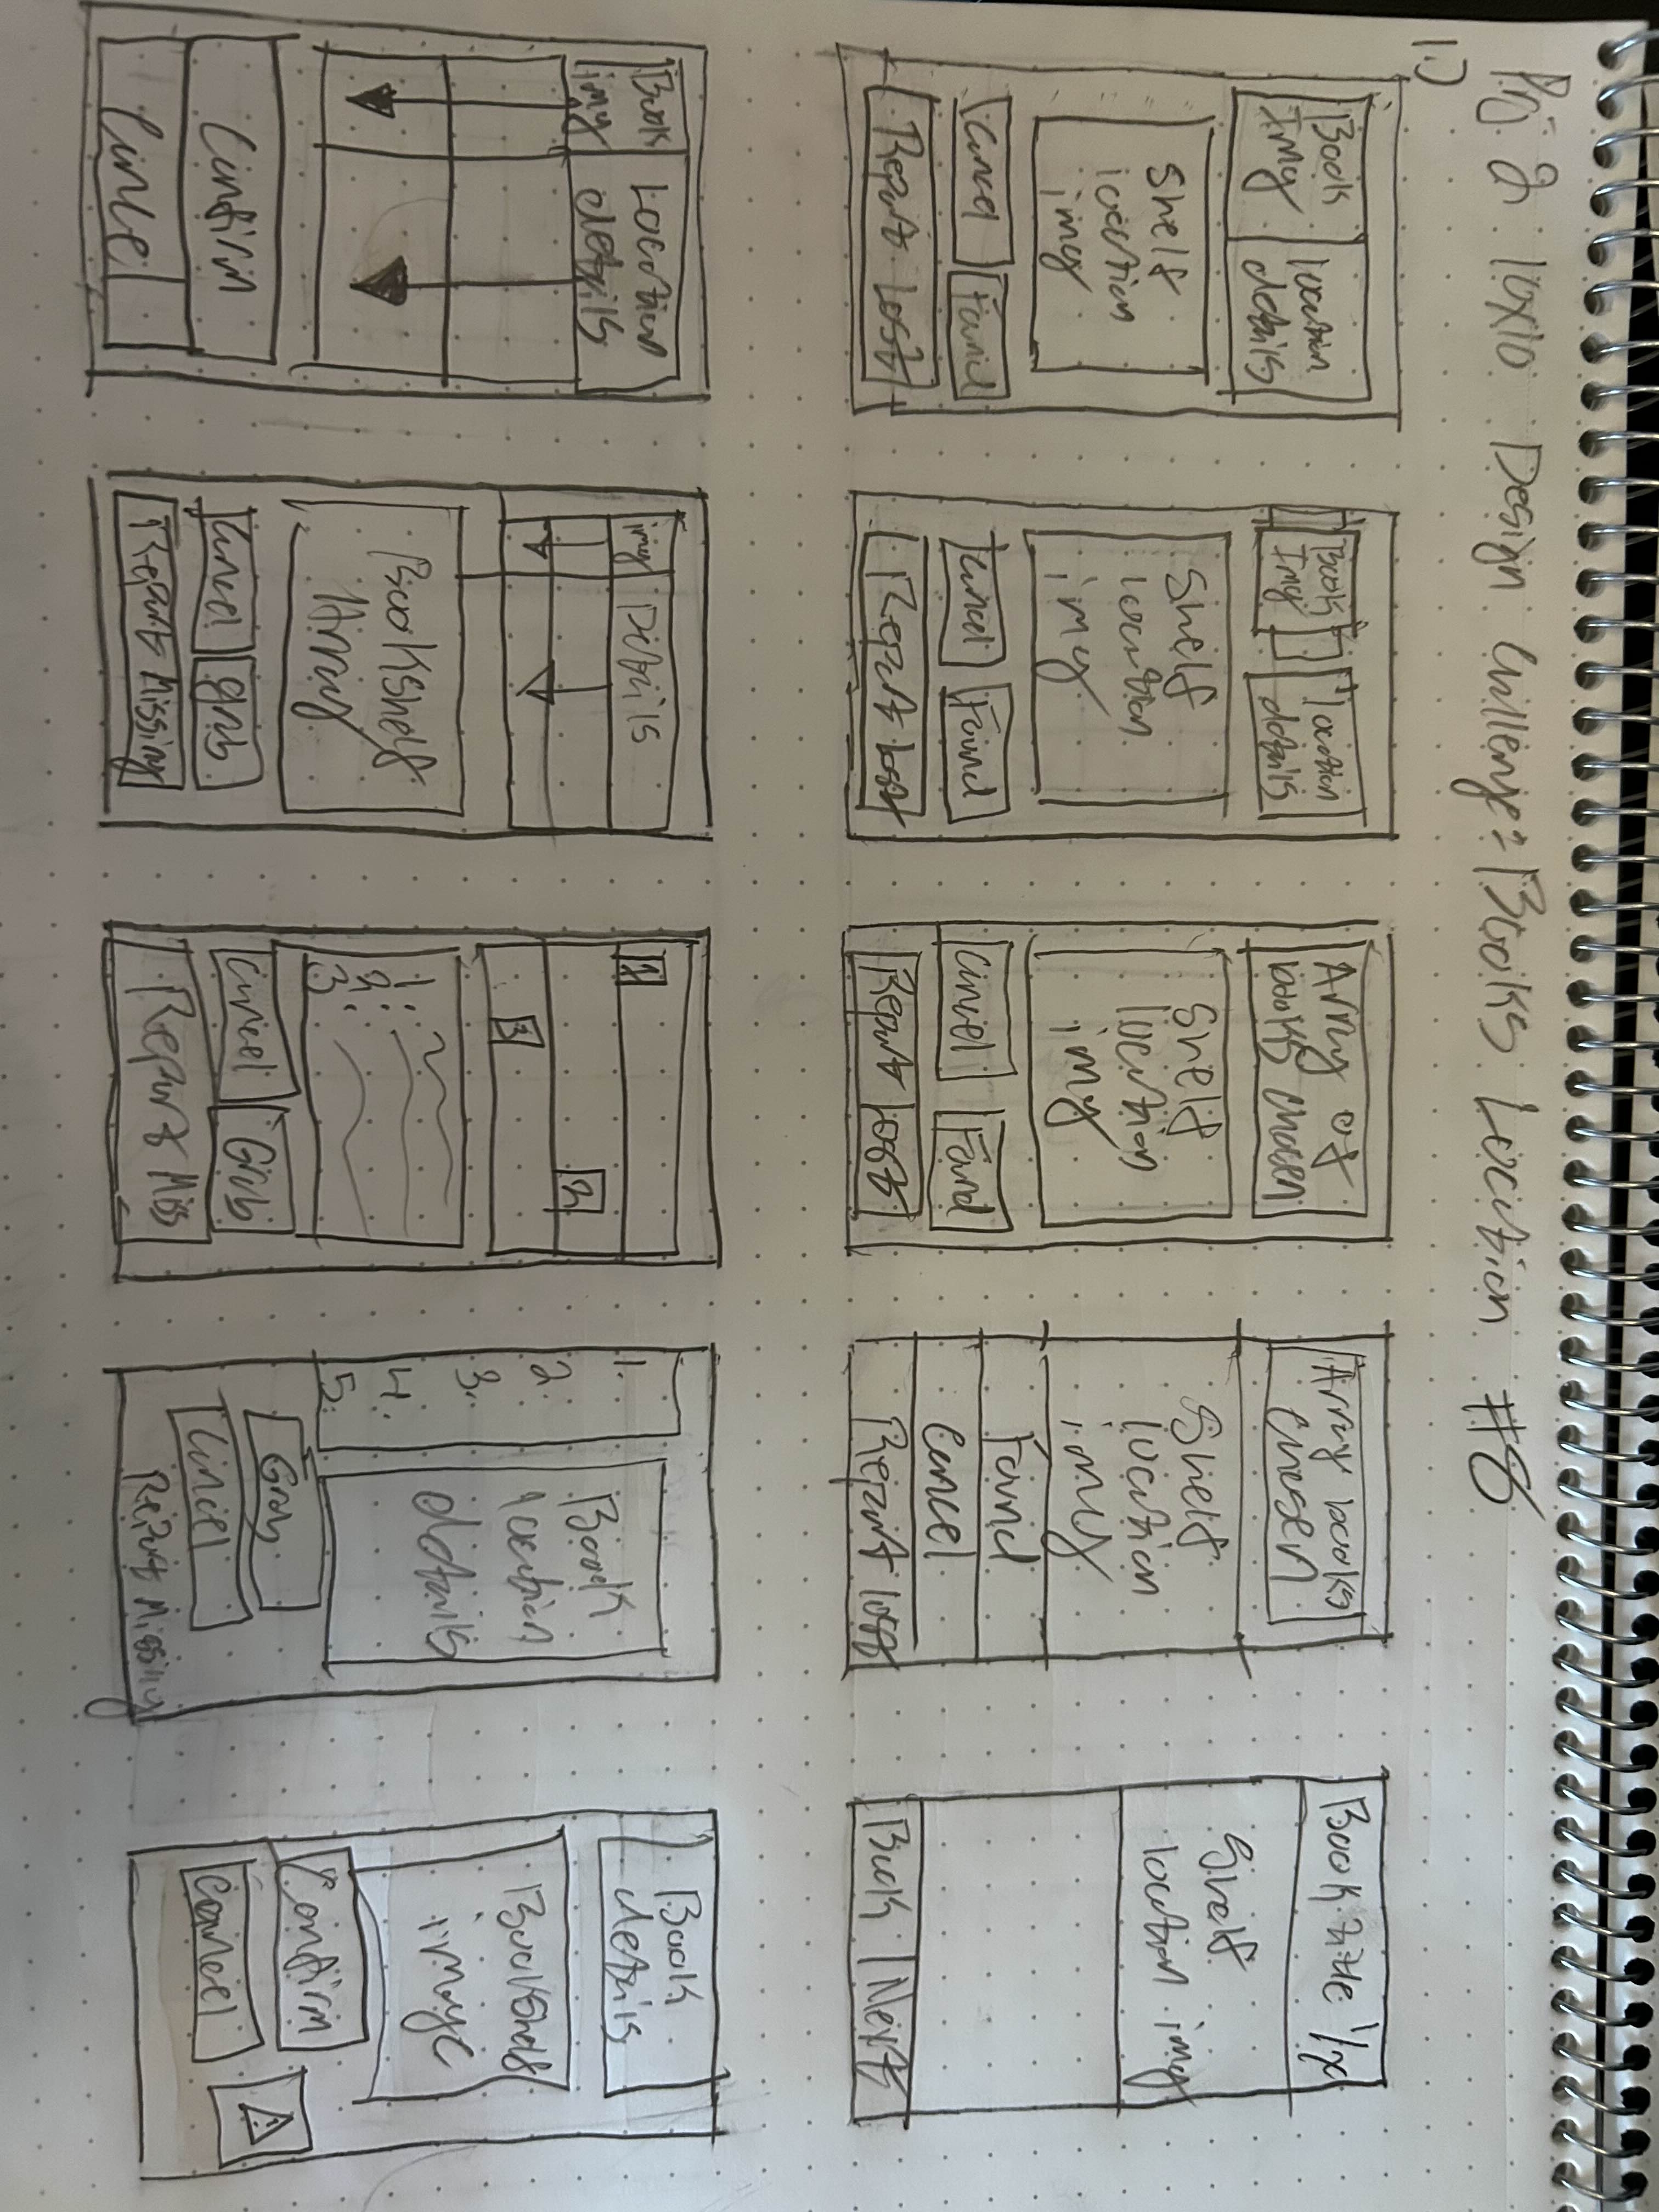 Prj 2 10x10 Design Challenge: Books Location #6
1.)
Book
Img
location
details
Shelf
location
img
Cancel
Found
Report Lost
Book
Img
location
details
Shelf
location
img
Cancel
Found
Report lost
Array of
books chosen
Shelf
location
img
Cancel
Found
Report lost
Array books
Chosen
Shelf
location
img
Found
Cancel
Report lost
Book title 1/x
Shelf
location img
Back
Next
Book
img
Location
details
Confirm
Cancel
img
Details
Bookshelf
Array
Cancel
grab
Report Missing
1
2
3
1.
2.
3.
Cancel
Grab
Report Miss
1.
2.
3.
4.
5.
Book
location
details
Grab
Cancel
Report Missing
Book
details
Bookshelf
image
Confirm
Cancel